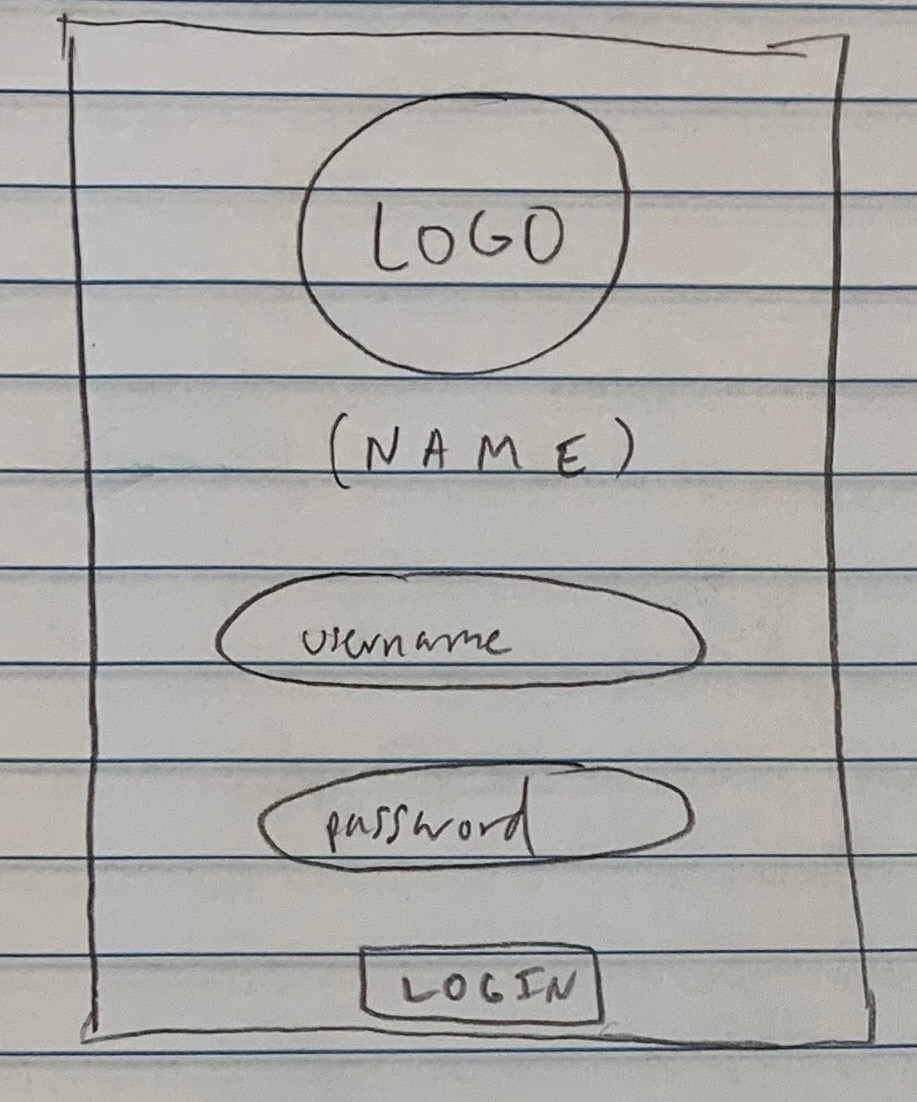 LOGO
(NAME)
username
password
LOGIN